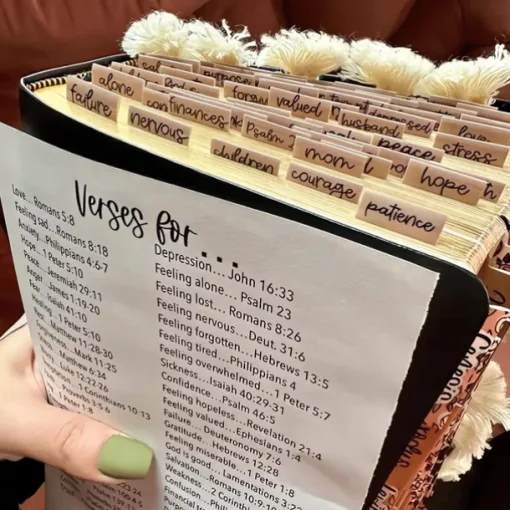 sad
purpose
alone
forgiv
valued
depressed
love
failure
confinances
Psalm
husband
stressed
nervous
peace
children
mom
hope
courage
patience
Verses for...
Love...Romans 5:8
Feeling sad...Romans 8:18
Anxiety...Philippians 4:6-7
Hope...1 Peter 5:10
Peace...Jeremiah 29:11
Anger...James 1:19-20
Fear...Isaiah 41:10
Healing...1 Peter 5:10
Rest...Matthew 11:28-30
Forgiveness...Mark 11:25
Matthew 6:34
Luke 12:22-26
1 Corinthians 10:13
Proverbs 3:5-6
1 Peter 1:8
Depression...John 16:33
Feeling alone...Psalm 23
Feeling lost...Romans 8:26
Feeling nervous...Deut. 31:6
Feeling forgotten...Hebrews 13:5
Feeling tired...Philippians 4
Feeling overwhelmed...1 Peter 5:7
Sickness...Isaiah 40:29-31
Confidence...Psalm 46:5
Feeling hopeless...Revelation 21:4
Feeling valued...Ephesians 1:4
Failure...Deuteronomy 7:6
Gratitude...Hebrews 12:28
Feeling miserable...1 Peter 1:8
God is good...Lamentations 3:22
Salvation...Romans 10:9-10
Weakness...2 Corinthi
Confusion...Phil
Financial